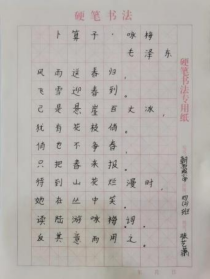 硬笔书法
卜算子·咏梅
毛泽东
风雨送春归，
飞雪迎春到。
已是悬崖百丈冰，
犹有花枝俏。
俏也不争春，
只把春来报。
待到山花烂漫时，
她在丛中笑。
读陆游咏梅词，
反其意而用之。
硬笔书法专用纸